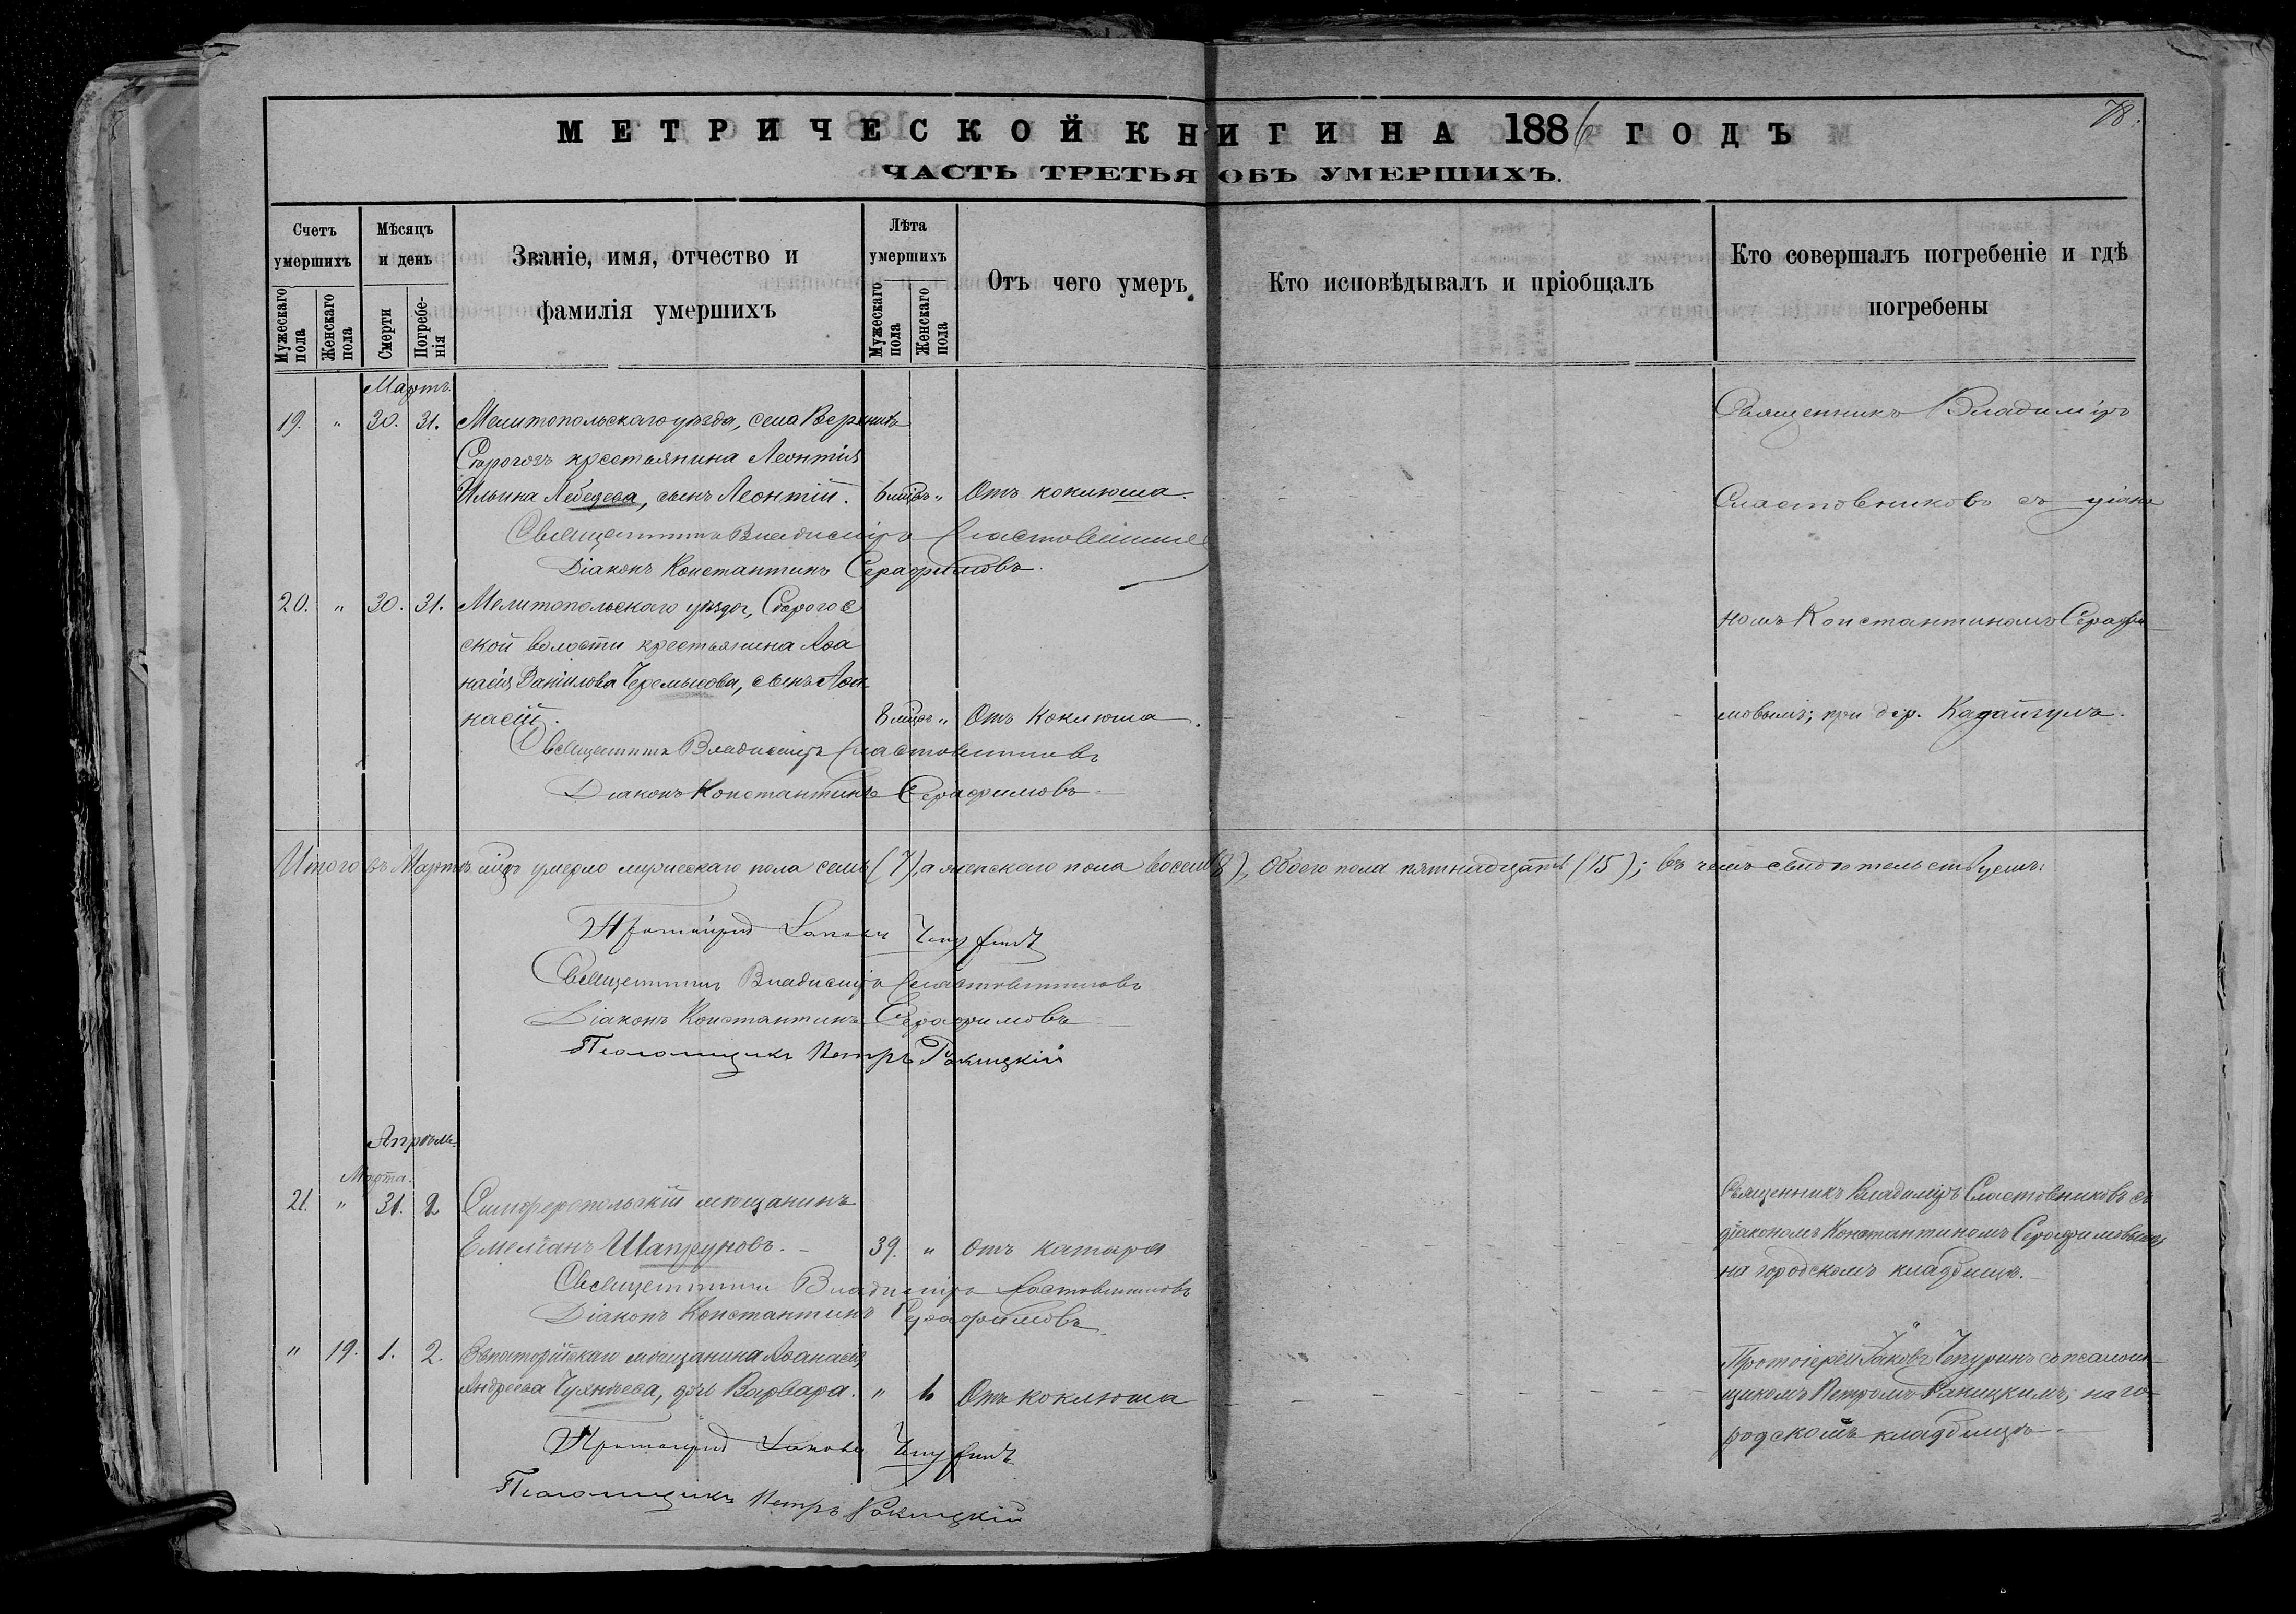 78.
МЕТРИЧЕСКОЙ КНИГИ НА 1886 ГОДЪ
ЧАСТЬ ТРЕТЬЯ ОБЪ УМЕРШИХЪ.
Счетъ умершихъ
Мужескаго пола
Женскаго пола
Мѣсяцъ и день
Смерти
Погребе-нія
Званіе, имя, отчество и
фамилія умершихъ
Лѣта умершихъ
Мужескаго пола
Женскаго пола
Отъ чего умеръ.
Кто исповѣдывалъ и пріобщалъ
Кто совершалъ погребеніе и гдѣ
погребены
Мартъ.
19. " 30. 31. Мелитопольскаго уѣзда, села Верхнихъ
крестьянина Леонтія
Ильина сынъ Леонтій. 6 мѣс. " Отъ коклюша.
Священникъ Владиміръ
Сластовниковъ съ діако
Священникъ Владиміръ Сластовниковъ
Діаконъ Константинъ Серафимовъ.
20. " 30. 31. Мелитопольскаго уѣзда,
ской волости крестьянина Аѳа
насія Данилова сынъ Аѳа
насій. 8 мѣс. " Отъ коклюша.
номъ Константиномъ Серафи
мовымъ; при дер.
Священникъ Владиміръ Сластовниковъ
Діаконъ Константинъ Серафимовъ
Итого въ Мартѣ мѣс. умерло мужескаго пола семь (7), а женскаго пола восемь (8), Обоего пола пятнадцать (15); въ чемъ свидѣтельствуемъ:
Протоіерей Іаковъ Чепуринъ
Священникъ Владиміръ Сластовниковъ
Діаконъ Константинъ Серафимовъ
Псаломщикъ Петръ Ракицкій
Апрѣль.
Марта.
21. " 31. 2 Симферопольскій мѣщанинъ
Емеліанъ Шапруновъ. 39. " Отъ катара
Священникъ Владиміръ Сластовниковъ съ
діакономъ Константиномъ Серафимовымъ,
на городскомъ кладбищѣ.
Священникъ Владиміръ Сластовниковъ
Діаконъ Константинъ Серафимовъ
" 19. 1. 2. Евпаторійскаго мѣщанина Аѳанасія
Андреева дочь Варвара. " 6 Отъ коклюша
Протоіерей Іаковъ Чепуринъ съ псалом-
щикомъ Петромъ Ракицкимъ, на го-
родскомъ кладбищѣ.
Протоіерей Іаковъ Чепуринъ
Псаломщикъ Петръ Ракицкій